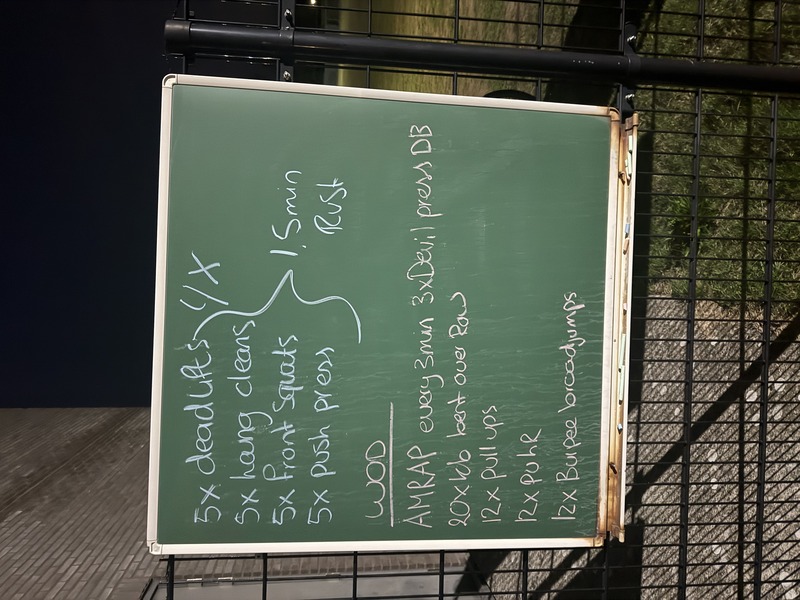 5x deadlifts 4x
5x hang cleans
5x front squats 1,5min
5x push press Rust
WOD
AMRAP every 3min 3xDevil press DB
20x kb bent over Row
12x pull ups
12x puhR
12x Burpee broadjumps